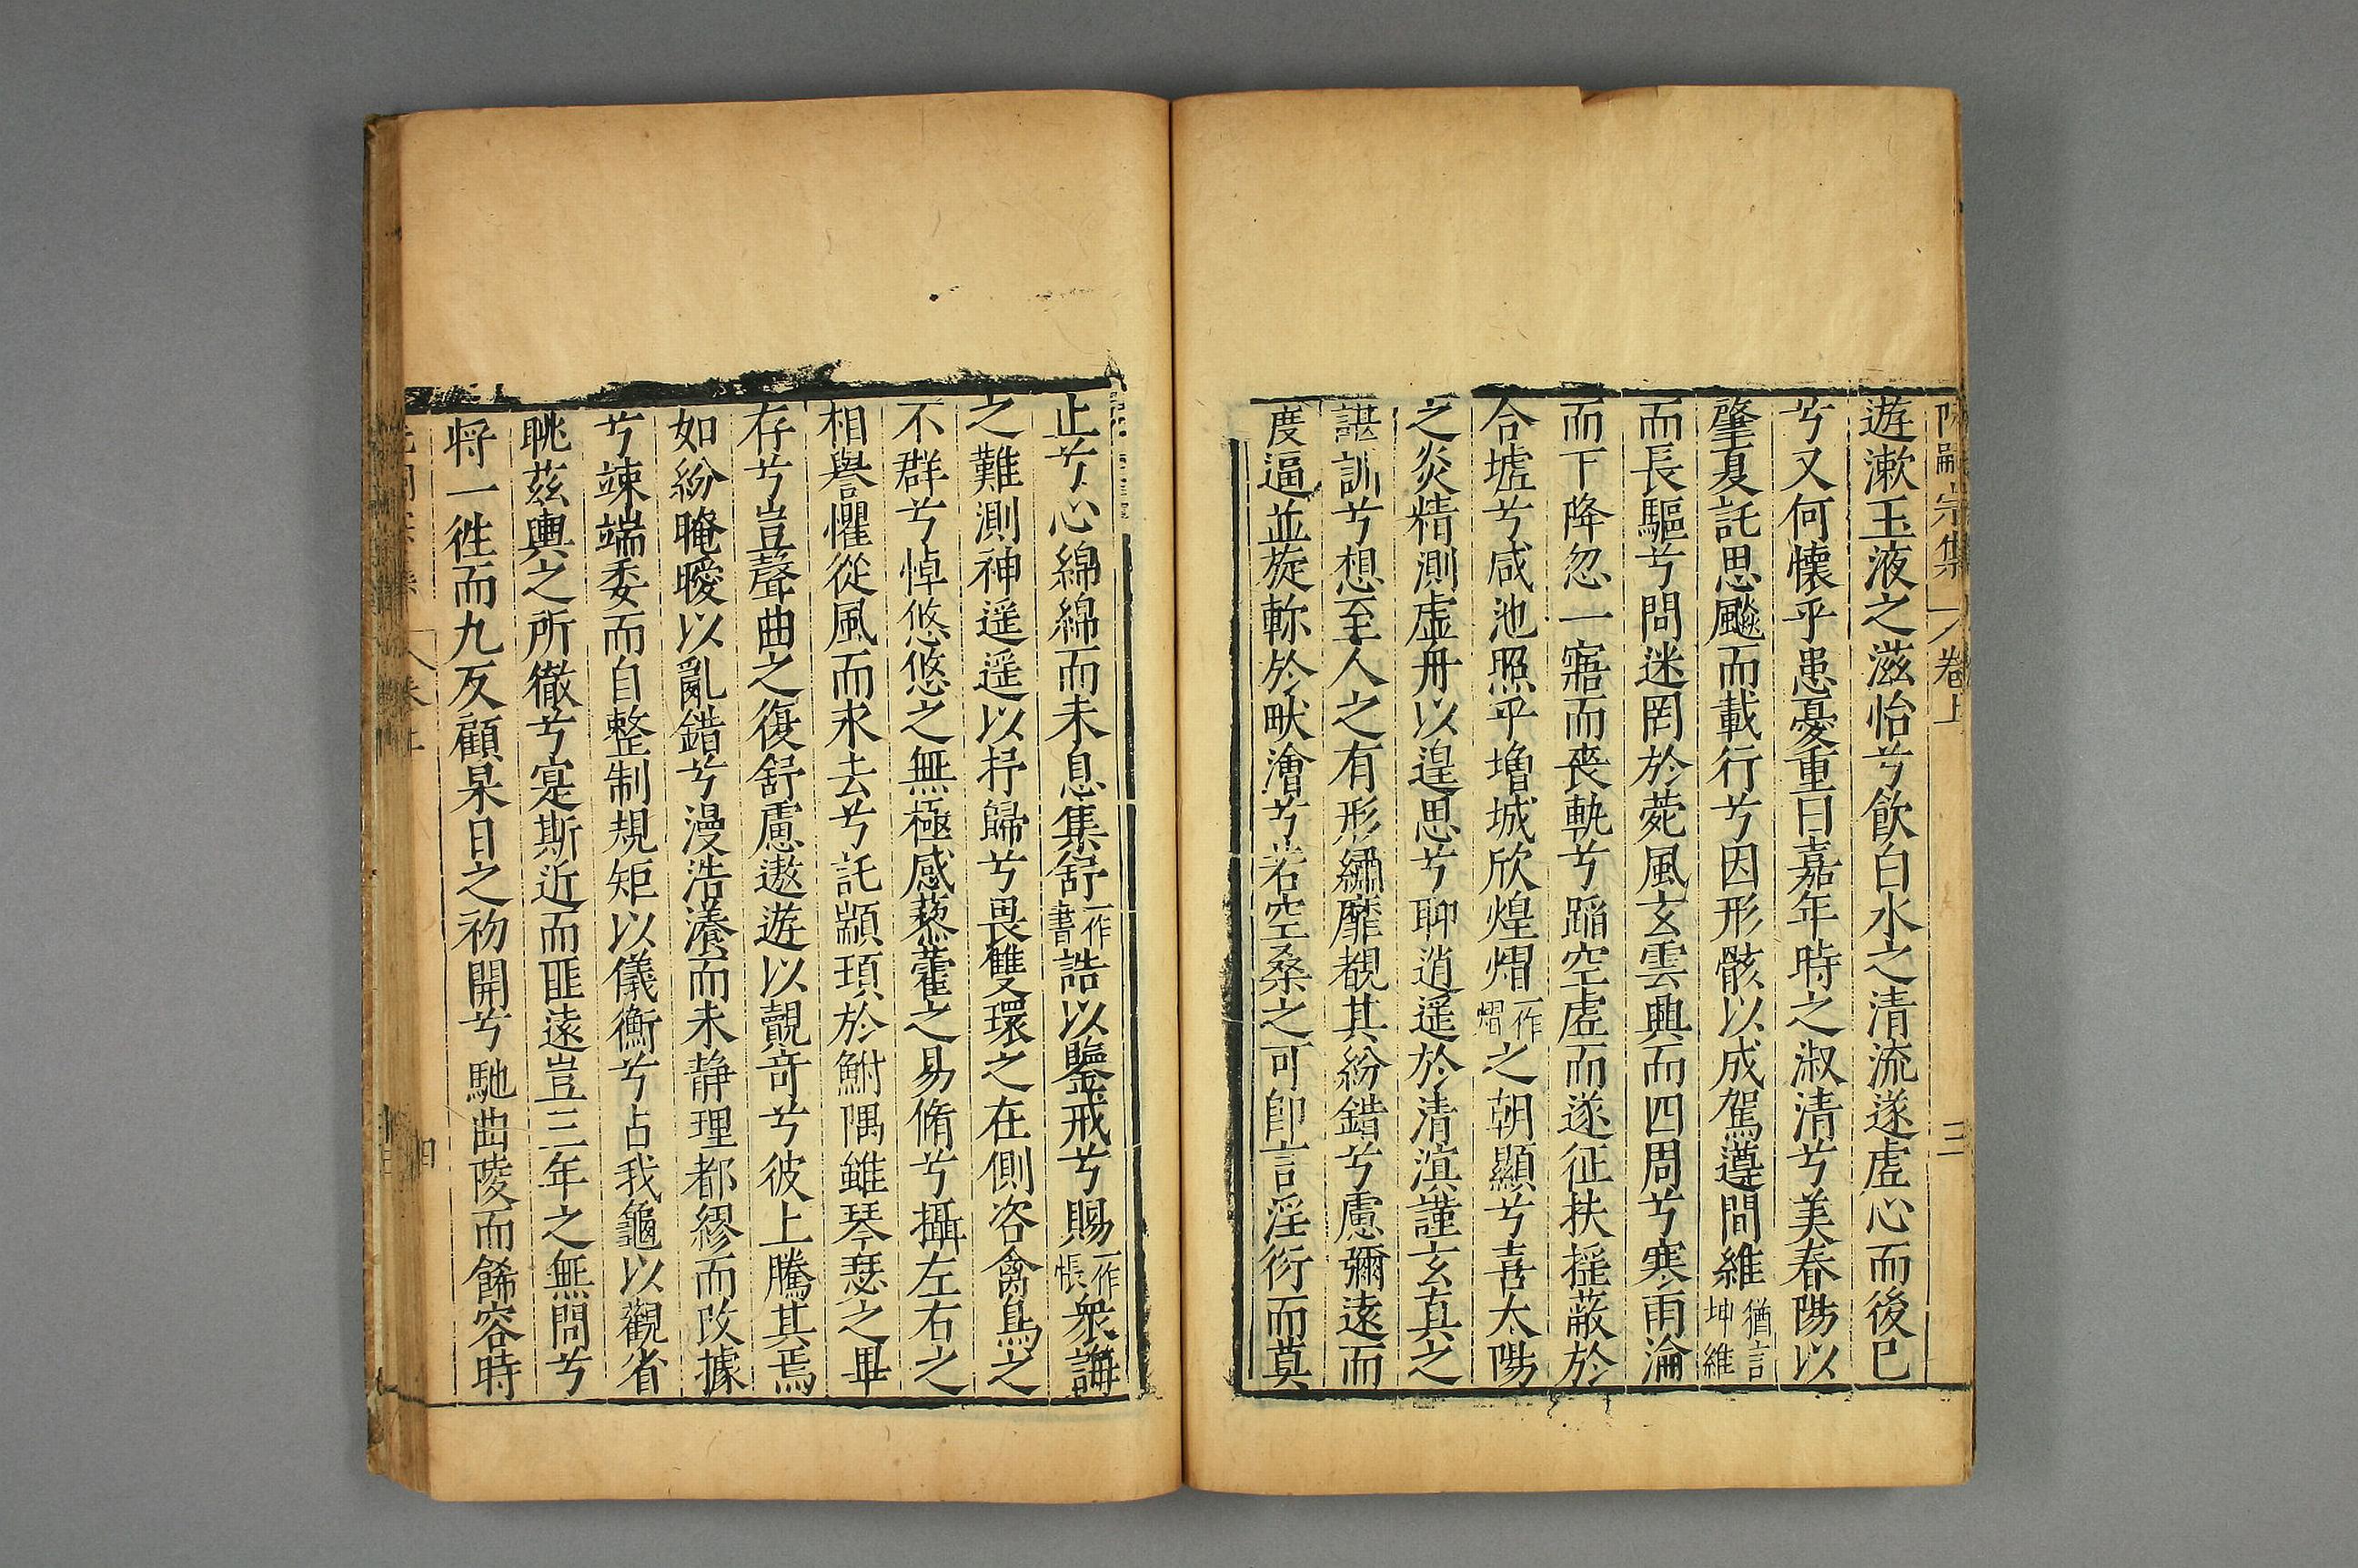 阮嗣宗集 卷上 三
遊漱玉液之滋怡兮飲白水之清流遂虛心而後已
兮又何懷乎患憂重曰嘉年時之淑清兮美春陽以
肇夏託思飈而載行兮因形骸以成駕遵間維猶言坤維
而長驅兮問迷罔於菀風玄雲興而四周兮寒雨淪
而下降忽一寤而喪軌兮蹈空虛而遂征扶搖蔽於
合墟兮咸池照乎增城欣煌熠一作熠之朝顯兮喜太陽
之炎精測虛舟以遑思兮聊逍遙於清溟謹玄真之
諶訓兮想至人之有形繡靡覩其紛錯兮慮彌遠而
度逼並旋軫於畎澮兮若空桑之可即言淫衍而莫
止兮心綿綿而未息集舒一作書誥以鑒戒兮賜一作悵衆誨
之難測神遥遥以抒歸兮畏雙環之在側咨禽鳥之
不群兮悼悠悠之無極感蔾藿之易脩兮攝左右之
相譽懼從風而永去兮託顓頊於鮒隅雖琴瑟之畢
存兮豈聲曲之復舒慮遨遊以覿奇兮彼上騰其焉
如紛晻曖以亂錯兮漫浩瀁而未静理都繆而改據
兮竦端委而自整制規矩以儀衡兮占我龜以觀省
眺茲輿之所徹兮寔斯近而匪遠豈三年之無問兮
将一徃而九反顧杲日之初開兮馳曲陵而餙容時
四